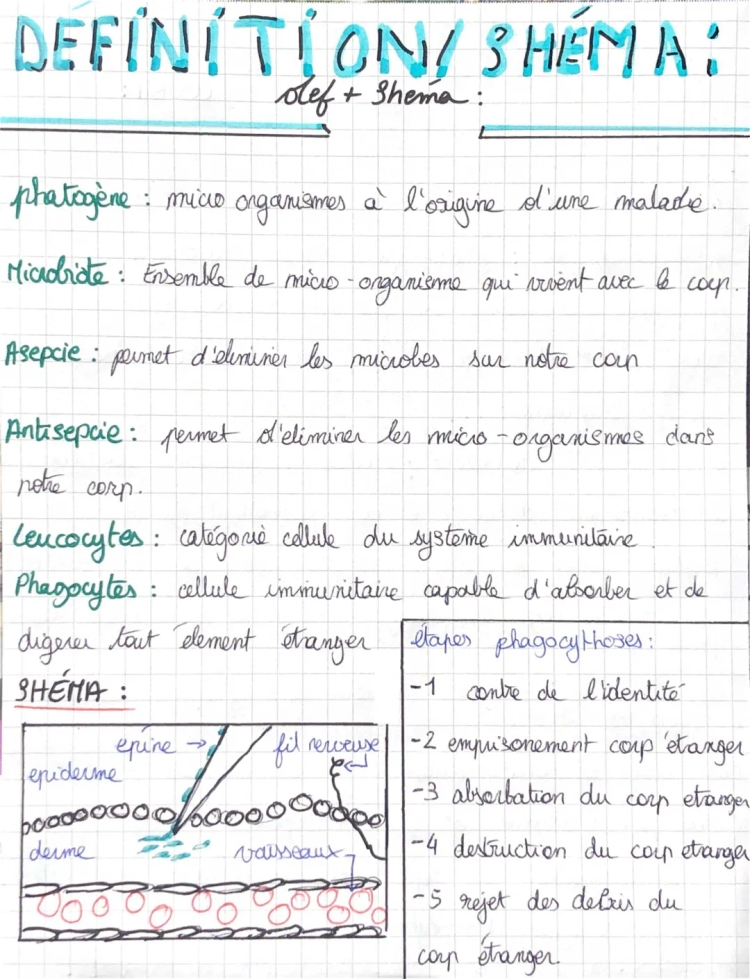 DÉFINITION/SHÉMA:
def + shema:
phatogène : micro organismes à l'origine d'une maladie.
Microbiote : Ensemble de micro-organisme qui vivent avec le corp.
Asepcie : permet d'eliminer les microbes sur notre corp
Antisepcie : permet d'eliminer les micro-organismes dans
notre corp.
leucocytes : catégorie cellule du système immunitaire.
Phagocytes : cellule immunitaire capable d'absorber et de
digerer tout élement étranger
SHÉMA :
epine
fil nerveuse
epiderme
derme
vaisseaux
étapes phagocythoses :
-1 contre de l'identité
-2 emprisonement corp étranger
-3 absorbation du corp etranger
-4 destruction du corp etranger
-5 rejet des debris du
corp étranger.